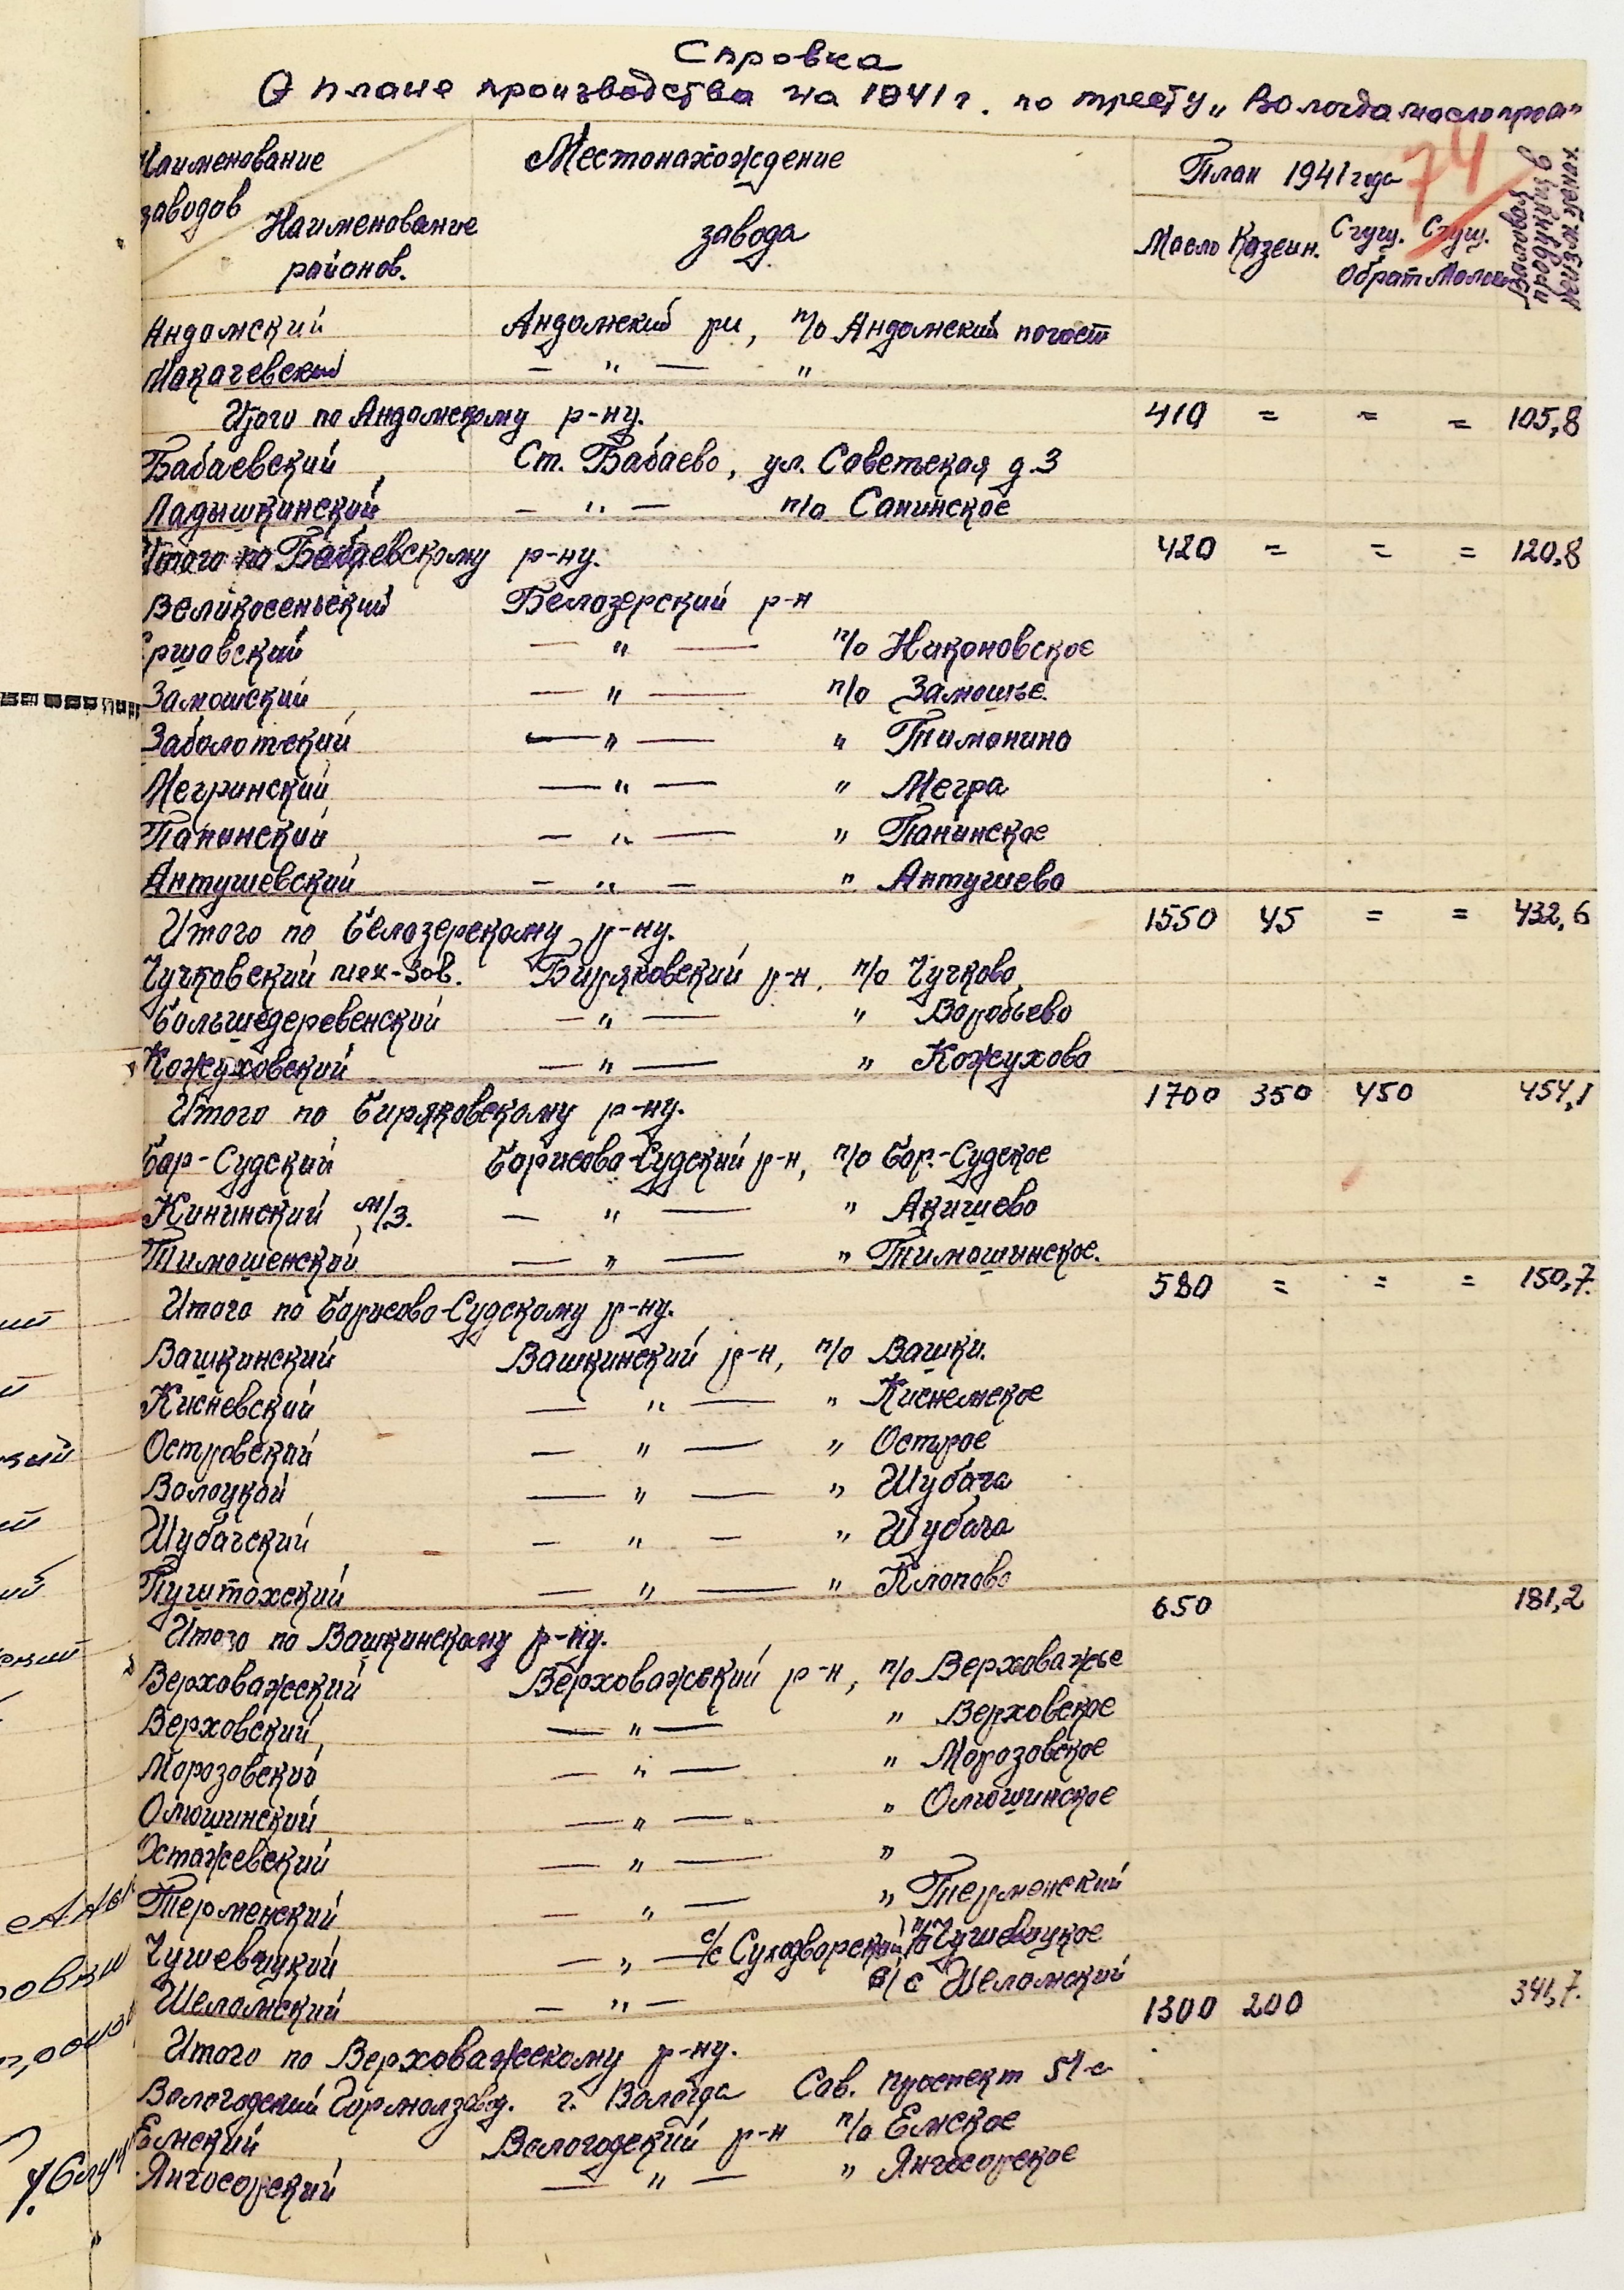 Справка
О плане производства на 1941 г. по тресту „Вологдамаслопром"
74
Наименование заводов
Наименование районов.
Местонахождение завода
План 1941 года
Масло Казеин. Сгущ. обрат Сгущ. молоко
Валовая продукция в неизм. ценах.
Андомский Андомский рн, п/о Андомский погост
Макачевский — " — "
Итого по Андомскому р-ну. 410 = = = 105,8
Бабаевский Ст. Бабаево, ул. Советская д. 3
Ладышкинский — " — п/о Санинское
Итого по Бабаевскому р-ну. 420 = = = 120,8
Великосельский Белозерский р-н
Ершовский — " — п/о Никоновское
Замошский — " — п/о Замошье.
Заболотский — " — " Тимонино
Мегринский — " — " Мегра
Панинский — " — " Панинское
Антушевский — " — " Антушево
Итого по Белозерскому р-ну. 1550 45 = = 432,6
Чучковский мех-зав. Биряковский р-н, п/о Чучково
Большедеревенский — " — " Воробьево
Кожуховский — " — " Кожухово
Итого по Биряковскому р-ну. 1700 350 450 454,1
Бор-Судский Борисово-Судский р-н, п/о Бор.-Судское
Кининский м/з. — " — " Акишево
Тимошенской — " — " Тимошинское.
Итого по Борисово-Судскому р-ну. 580 = = = 150,7.
Вашкинский Вашкинский р-н, п/о Вашки.
Кисневский — " — " Киснемское
Островский — " — " Острое
Волоцкой — " — " Шубача
Шубачский — " — " Шубача
Пуштохский — " — " Клопово
Итого по Вашкинскому р-ну. 650 181,2
Верховажский Верховажский р-н, п/о Верховажье
Верховский — " — " Верховское
Морозовский — " — " Морозовское
Олюшинский — " — " Олюшинское
Остажевский — " — "
Терменский — " — " Терменский
Чушевицкий — " — с/с Суходворский, п/о Чушевицкое
Шеломский — " — с/с Шеломский
Итого по Верховажскому р-ну. 1300 200 341,7.
Вологодский Гормолзавод. г. Вологда Сов. проспект 51-а
Емский Вологодский р-н п/о Емское
Янгосорский — " — " Янгосорское